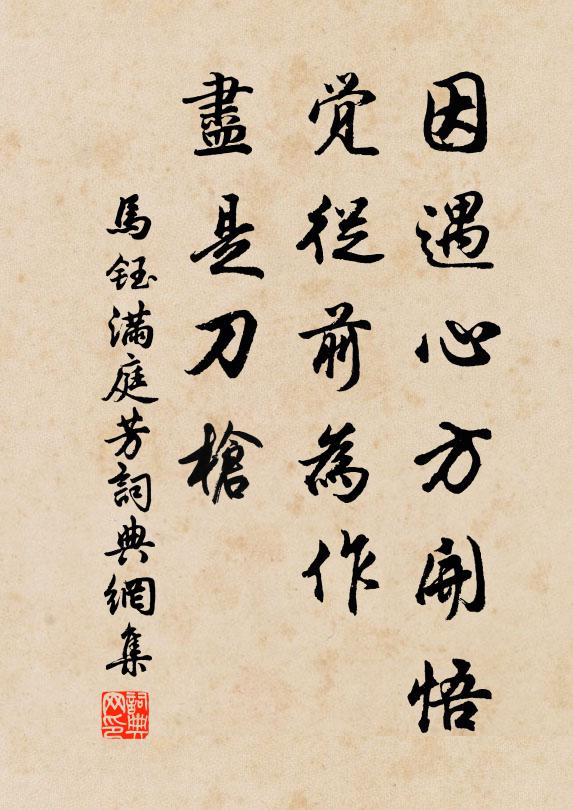 因遇心方開悟
覚從前為作
盡是刀槍
馬鈺滿庭芳詞典網集
詞典網印